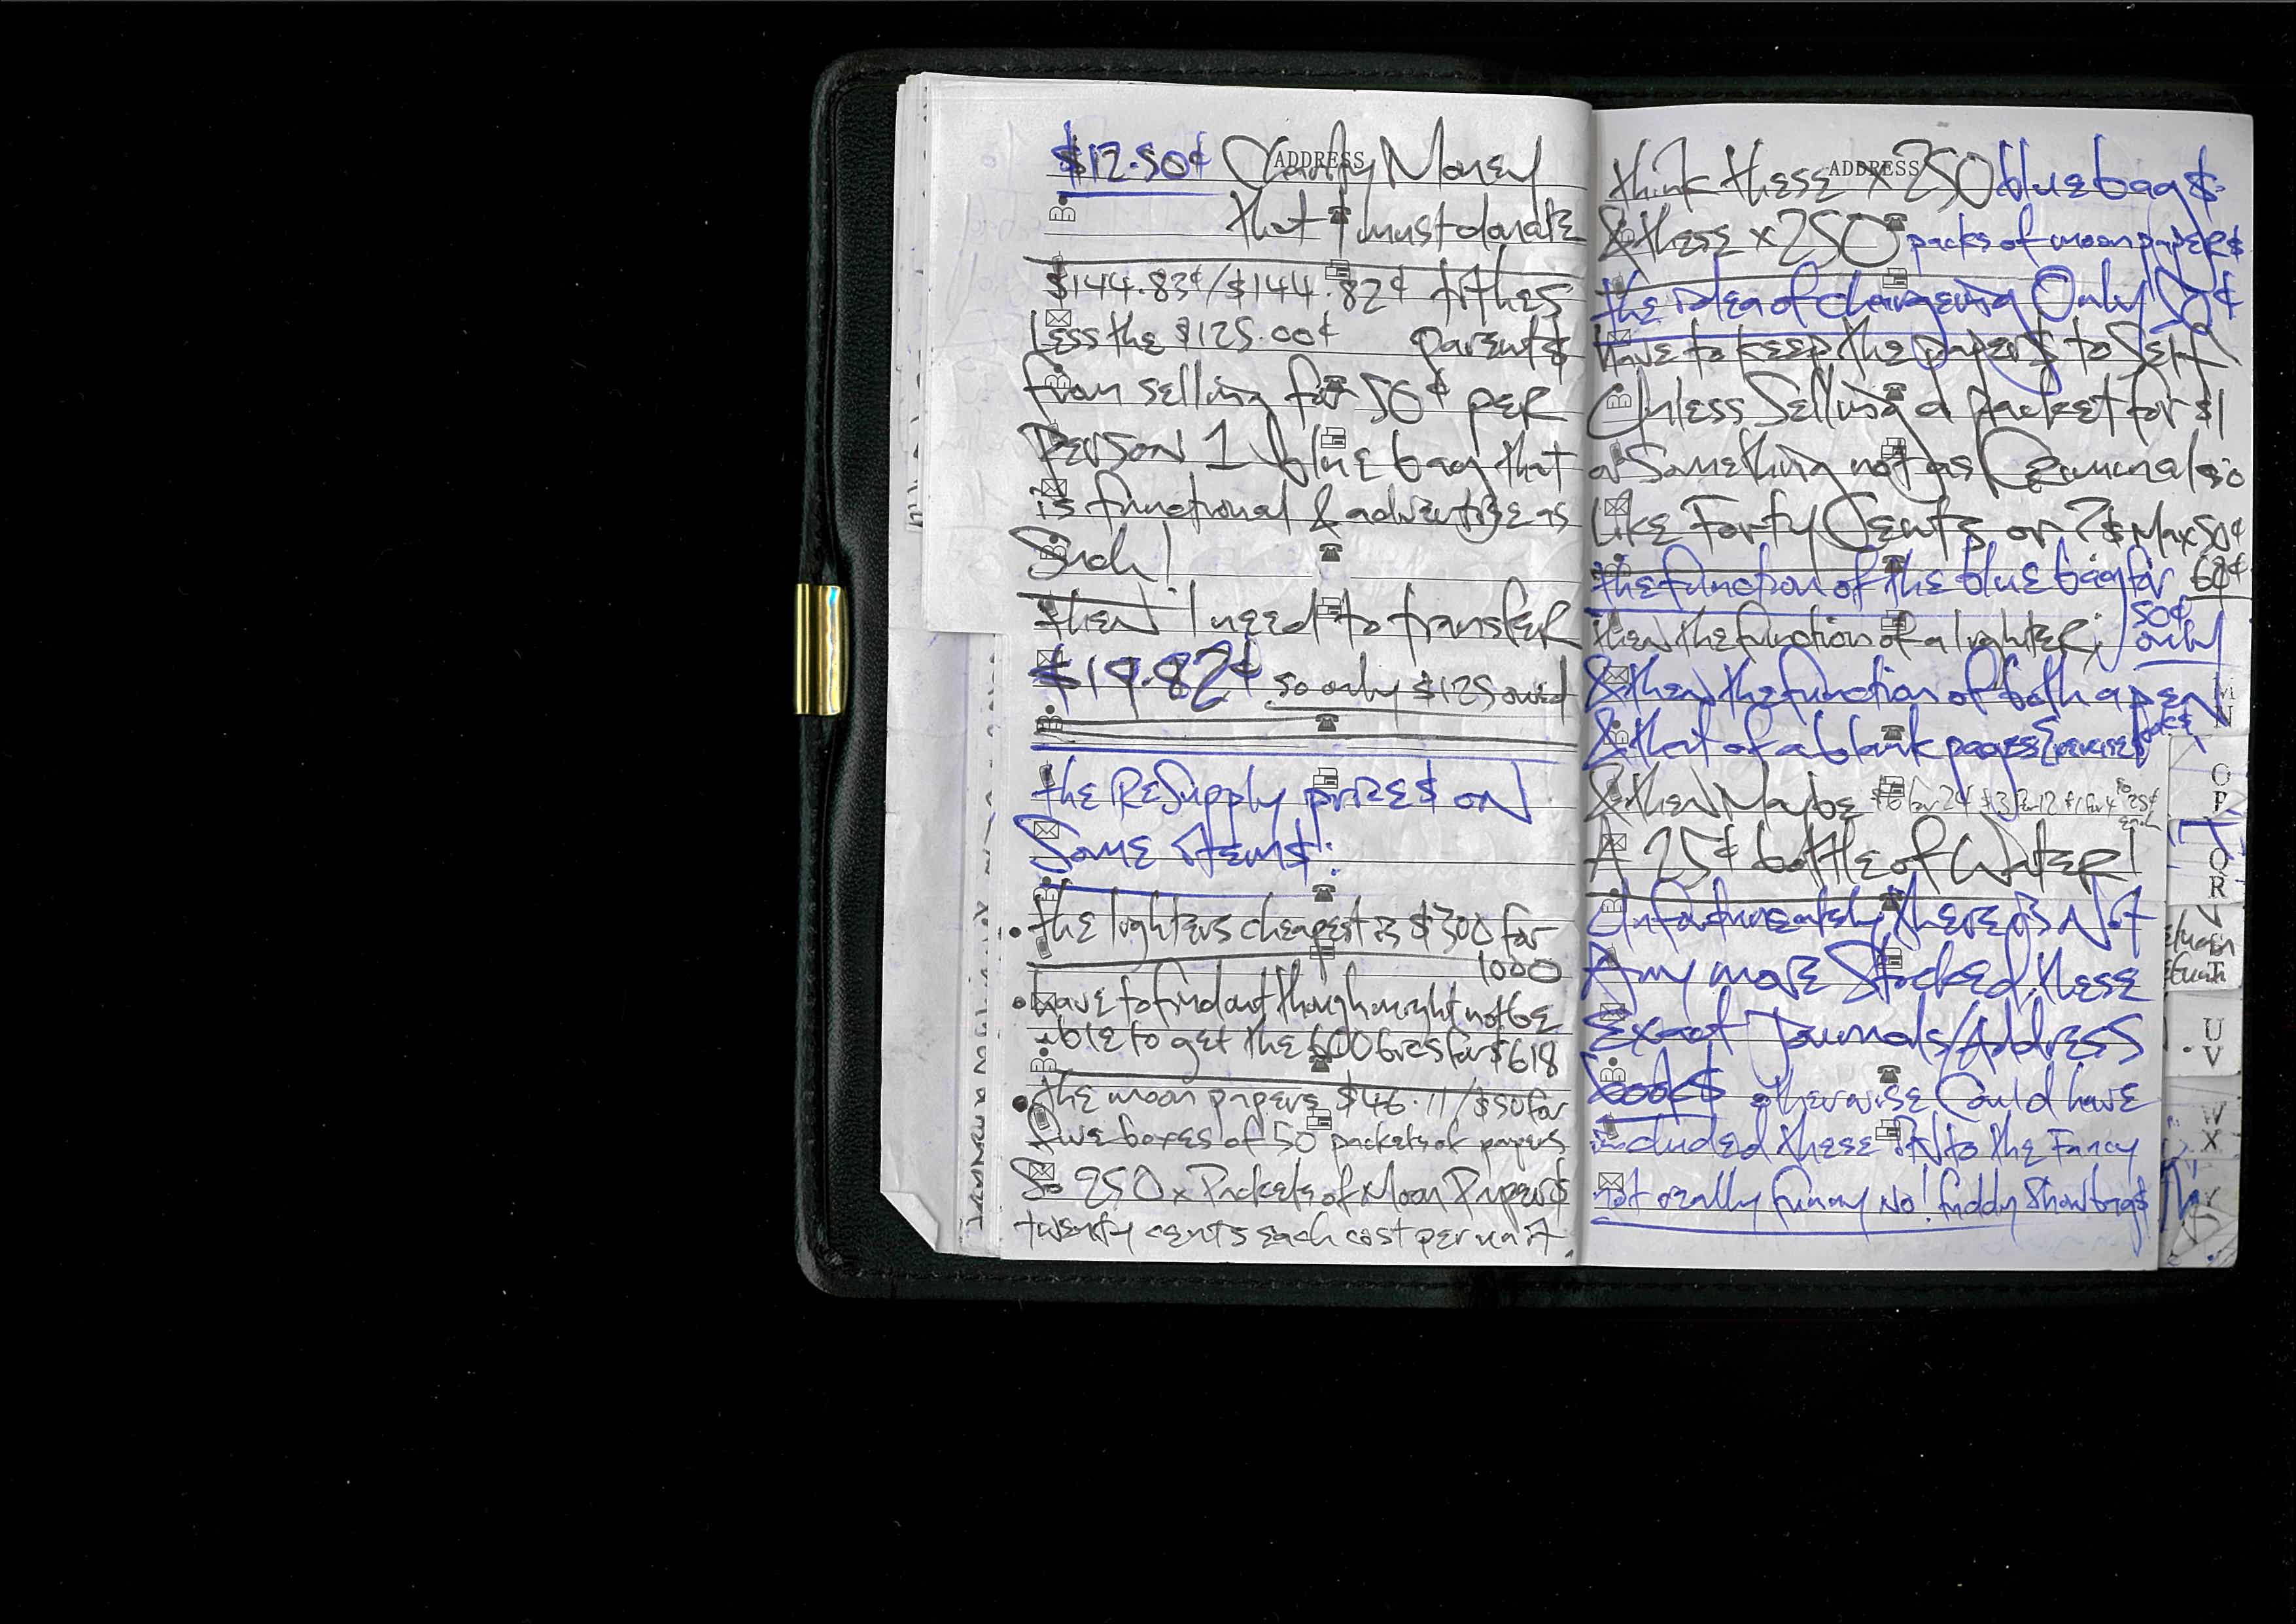 ADDRESS
$12.50¢ Charity Money
that I must donate
$144.83¢/$144.82¢ tithes
Less the $125.00¢ parent$
from selling for 50¢ per
Person 1 blue bag that
is functional & advertise as
Such!
then I need to transfer
$19.82¢ so only $125 owed
the ReSupply price$ on
Some Item$:
• the lighters cheapest is $300 for
1000
• have to find out though might not be
able to get the 600 for $618
• the moon papers $46.11/$50 for
five boxes of 50 packets of papers
So 250 x Packets of Moon Paper$
twenty cents each cost per unit.
ADDRESS
think these x 250 blue bag$
& these x 250 packs of moon paper$
the idea of chargeing Only 50¢
have to keep the paper$ to Self
Unless Selling a packet for $1
or Something not as
Like Forty Cents or ?$ Max 50¢
the function of the blue bag for 60¢
50¢
only
then the function of a lighter;
& then the function of both a pen
& that of a blank pages
& then Maybe $6 for 24 $3 for 12 $1 for 4 25¢
each
A 25¢ bottle of Water!
Unfortunately there is Not
Any more Stocked these
Exact Journals/Address
book$ otherwise Could have
included these INto the Fancy
not really funny No! fuddy Showbag$
M
N
O
P
Q
R
T
U
V
W
X